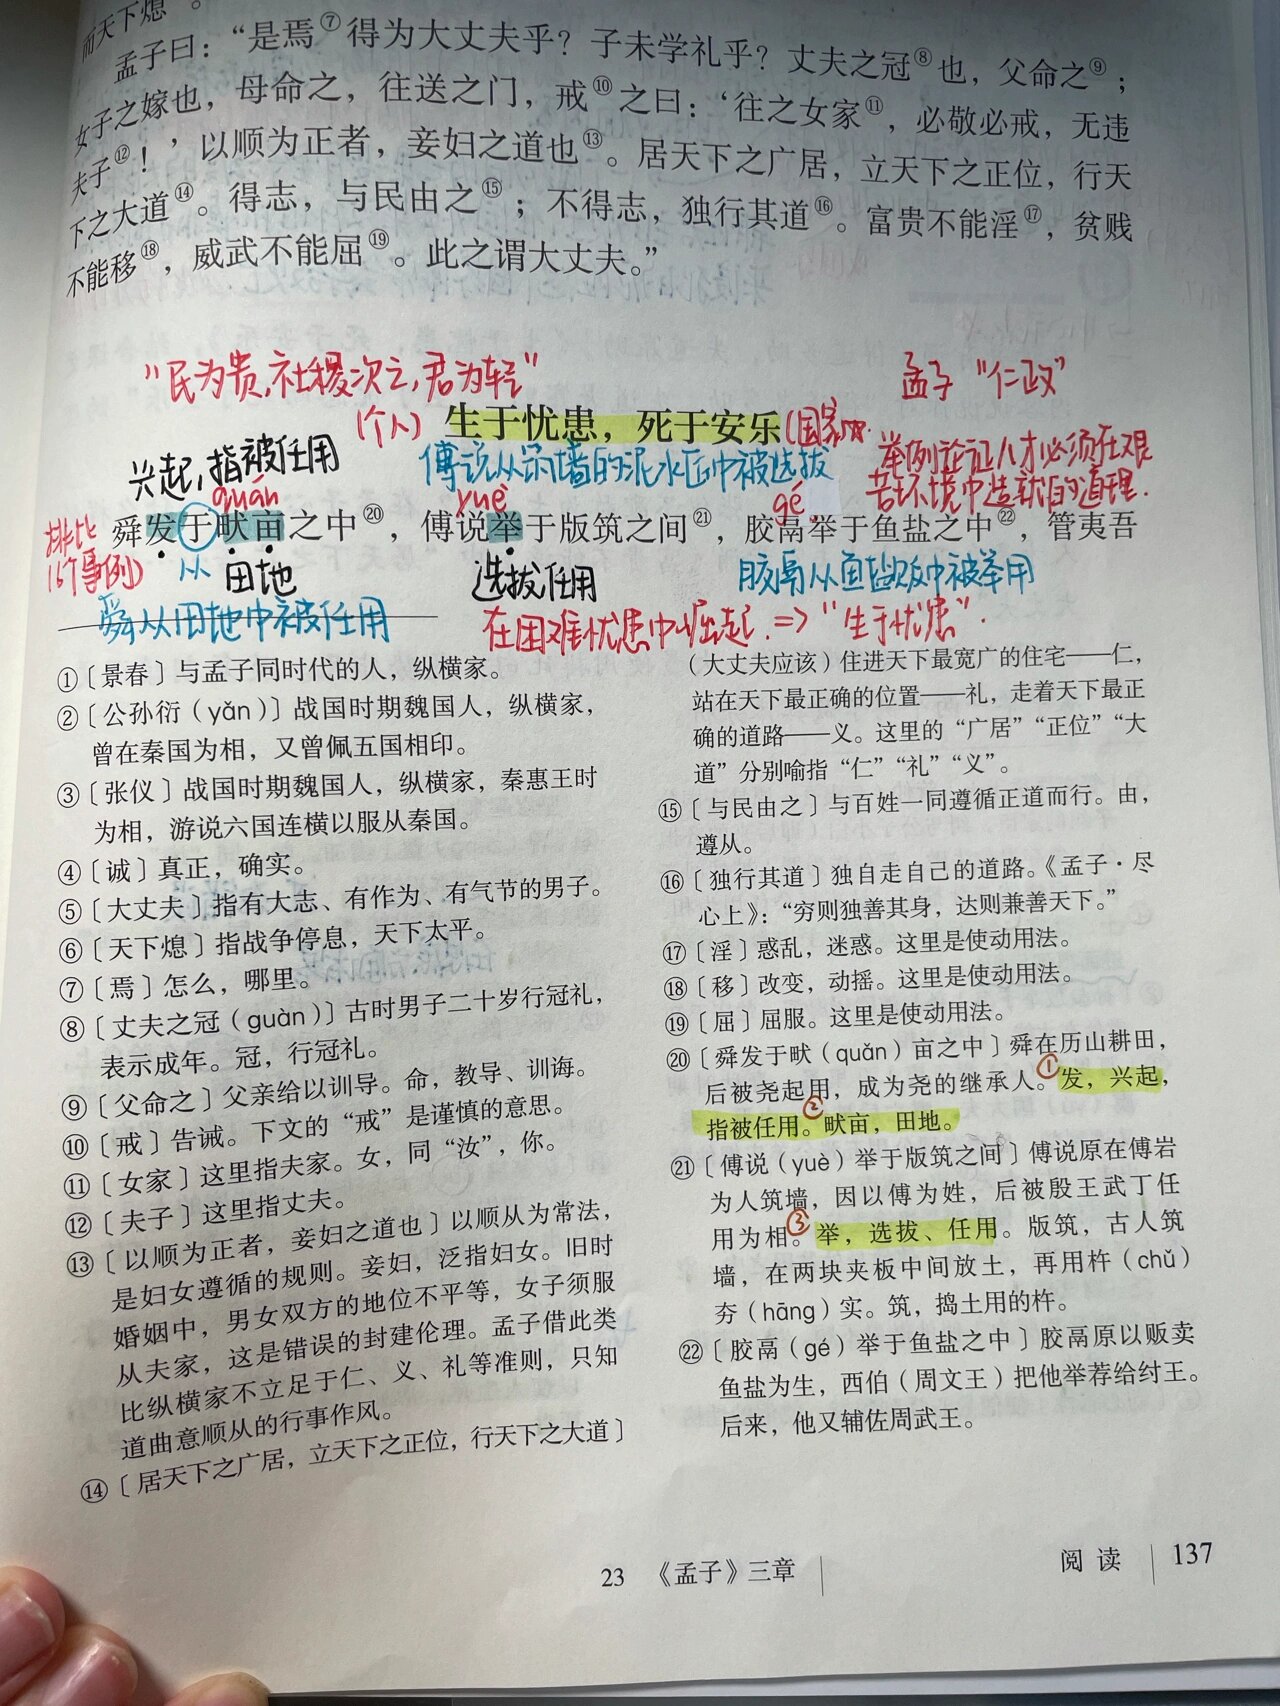 而天下熄。
孟子曰：“是焉⑦得为大丈夫乎？子未学礼乎？丈夫之冠⑧也，父命之⑨；
女子之嫁也，母命之，往送之门，戒⑩之曰：‘往之女家⑪，必敬必戒，无违
夫子⑫！’以顺为正者，妾妇之道也⑬。居天下之广居，立天下之正位，行天
下之大道⑭。得志，与民由之⑮；不得志，独行其道⑯。富贵不能淫⑰，贫贱
不能移⑱，威武不能屈⑲。此之谓大丈夫。”
“民为贵，社稷次之，君为轻”
孟子“仁政”
(个人) 生于忧患，死于安乐 (国家)
兴起，指被任用
傅说从筑墙的泥水匠中被选拔
举例论证人才必须在艰
苦环境中造就的道理.
quán yuè gé
排比
(6个事例)
舜发于畎亩之中⑳，傅说举于版筑之间㉑，胶鬲举于鱼盐之中㉒，管夷吾
从 田地 选拔任用 胶鬲从鱼盐贩中被举用
舜从田地中被任用
在困难忧患中崛起.=>“生于忧患”.
①〔景春〕与孟子同时代的人，纵横家。
②〔公孙衍（yǎn）〕战国时期魏国人，纵横家，
曾在秦国为相，又曾佩五国相印。
③〔张仪〕战国时期魏国人，纵横家，秦惠王时
为相，游说六国连横以服从秦国。
④〔诚〕真正，确实。
⑤〔大丈夫〕指有大志、有作为、有气节的男子。
⑥〔天下熄〕指战争停息，天下太平。
⑦〔焉〕怎么，哪里。
⑧〔丈夫之冠（guàn）〕古时男子二十岁行冠礼，
表示成年。冠，行冠礼。
⑨〔父命之〕父亲给以训导。命，教导、训诲。
⑩〔戒〕告诫。下文的“戒”是谨慎的意思。
⑪〔女家〕这里指夫家。女，同“汝”，你。
⑫〔夫子〕这里指丈夫。
⑬〔以顺为正者，妾妇之道也〕以顺从为常法，
是妇女遵循的规则。妾妇，泛指妇女。旧时
婚姻中，男女双方的地位不平等，女子须服
从夫家，这是错误的封建伦理。孟子借此类
比纵横家不立足于仁、义、礼等准则，只知
道曲意顺从的行事作风。
⑭〔居天下之广居，立天下之正位，行天下之大道〕
（大丈夫应该）住进天下最宽广的住宅——仁，
站在天下最正确的位置——礼，走着天下最正
确的道路——义。这里的“广居”“正位”“大
道”分别喻指“仁”“礼”“义”。
⑮〔与民由之〕与百姓一同遵循正道而行。由，
遵从。
⑯〔独行其道〕独自走自己的道路。《孟子·尽
心上》：“穷则独善其身，达则兼善天下。”
⑰〔淫〕惑乱，迷惑。这里是使动用法。
⑱〔移〕改变，动摇。这里是使动用法。
⑲〔屈〕屈服。这里是使动用法。
⑳〔舜发于畎（quǎn）亩之中〕舜在历山耕田，
后被尧起用，成为尧的继承人。①发，兴起，
指被任用。②畎亩，田地。
㉑〔傅说（yuè）举于版筑之间〕傅说原在傅岩
为人筑墙，因以傅为姓，后被殷王武丁任
用为相。③举，选拔、任用。版筑，古人筑
墙，在两块夹板中间放土，再用杵（chǔ）
夯（hāng）实。筑，捣土用的杵。
㉒〔胶鬲（gé）举于鱼盐之中〕胶鬲原以贩卖
鱼盐为生，西伯（周文王）把他举荐给纣王。
后来，他又辅佐周武王。
23 《孟子》三章
阅读 137